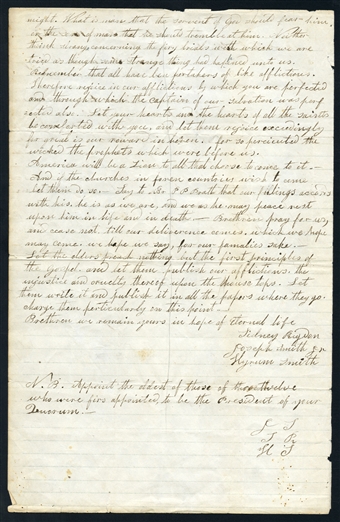 might. What is man that the servant of God should fear him
or the son of man that he should tremble at him. Neither
think strange concerning the firy trials with which we are
tried as though some strange thing had happened unto us.
Remember that all have been partakers of like afflictions.
Therefore rejoice in our afflictions by which you are perfected
and through which the captain of our salvation was perf
ected also. Let your hearts and the hearts of all the saints
be comforted with you, and let them rejoice exceedingly
for great is our reward in heaven, for so persecuted the
wicked the prophets which were before us.
America will be a Zion to all that choose to come to it.—
And if the churches in foren countries wish to come
let them do so. Say to Br. P P Pratt that our feelings accords
with his, he is as we are, and we as he may peace rest
upon him in life and in death— Brethren pray for us,
and cease not till our deliverence comes, which we hope
may come. we hope we say, for our families sake.—
Let the elders preach nothing but the first principles of
the Gospel and let them publish our afflictions. the
injustice and cruelty thereof upon the house tops. Let
them write it and publish it in all the papers where they go.
charge them particularly on this point.—
Brethren we remain yours in hope of Eternal life
Sidney Rigdon
Joseph Smith Jr
Hyrum Smith
N.B. Appoint the oldest of those of the twelve
who were firs appointed, to be the President of your
Quorum.—
J S
S R
H S